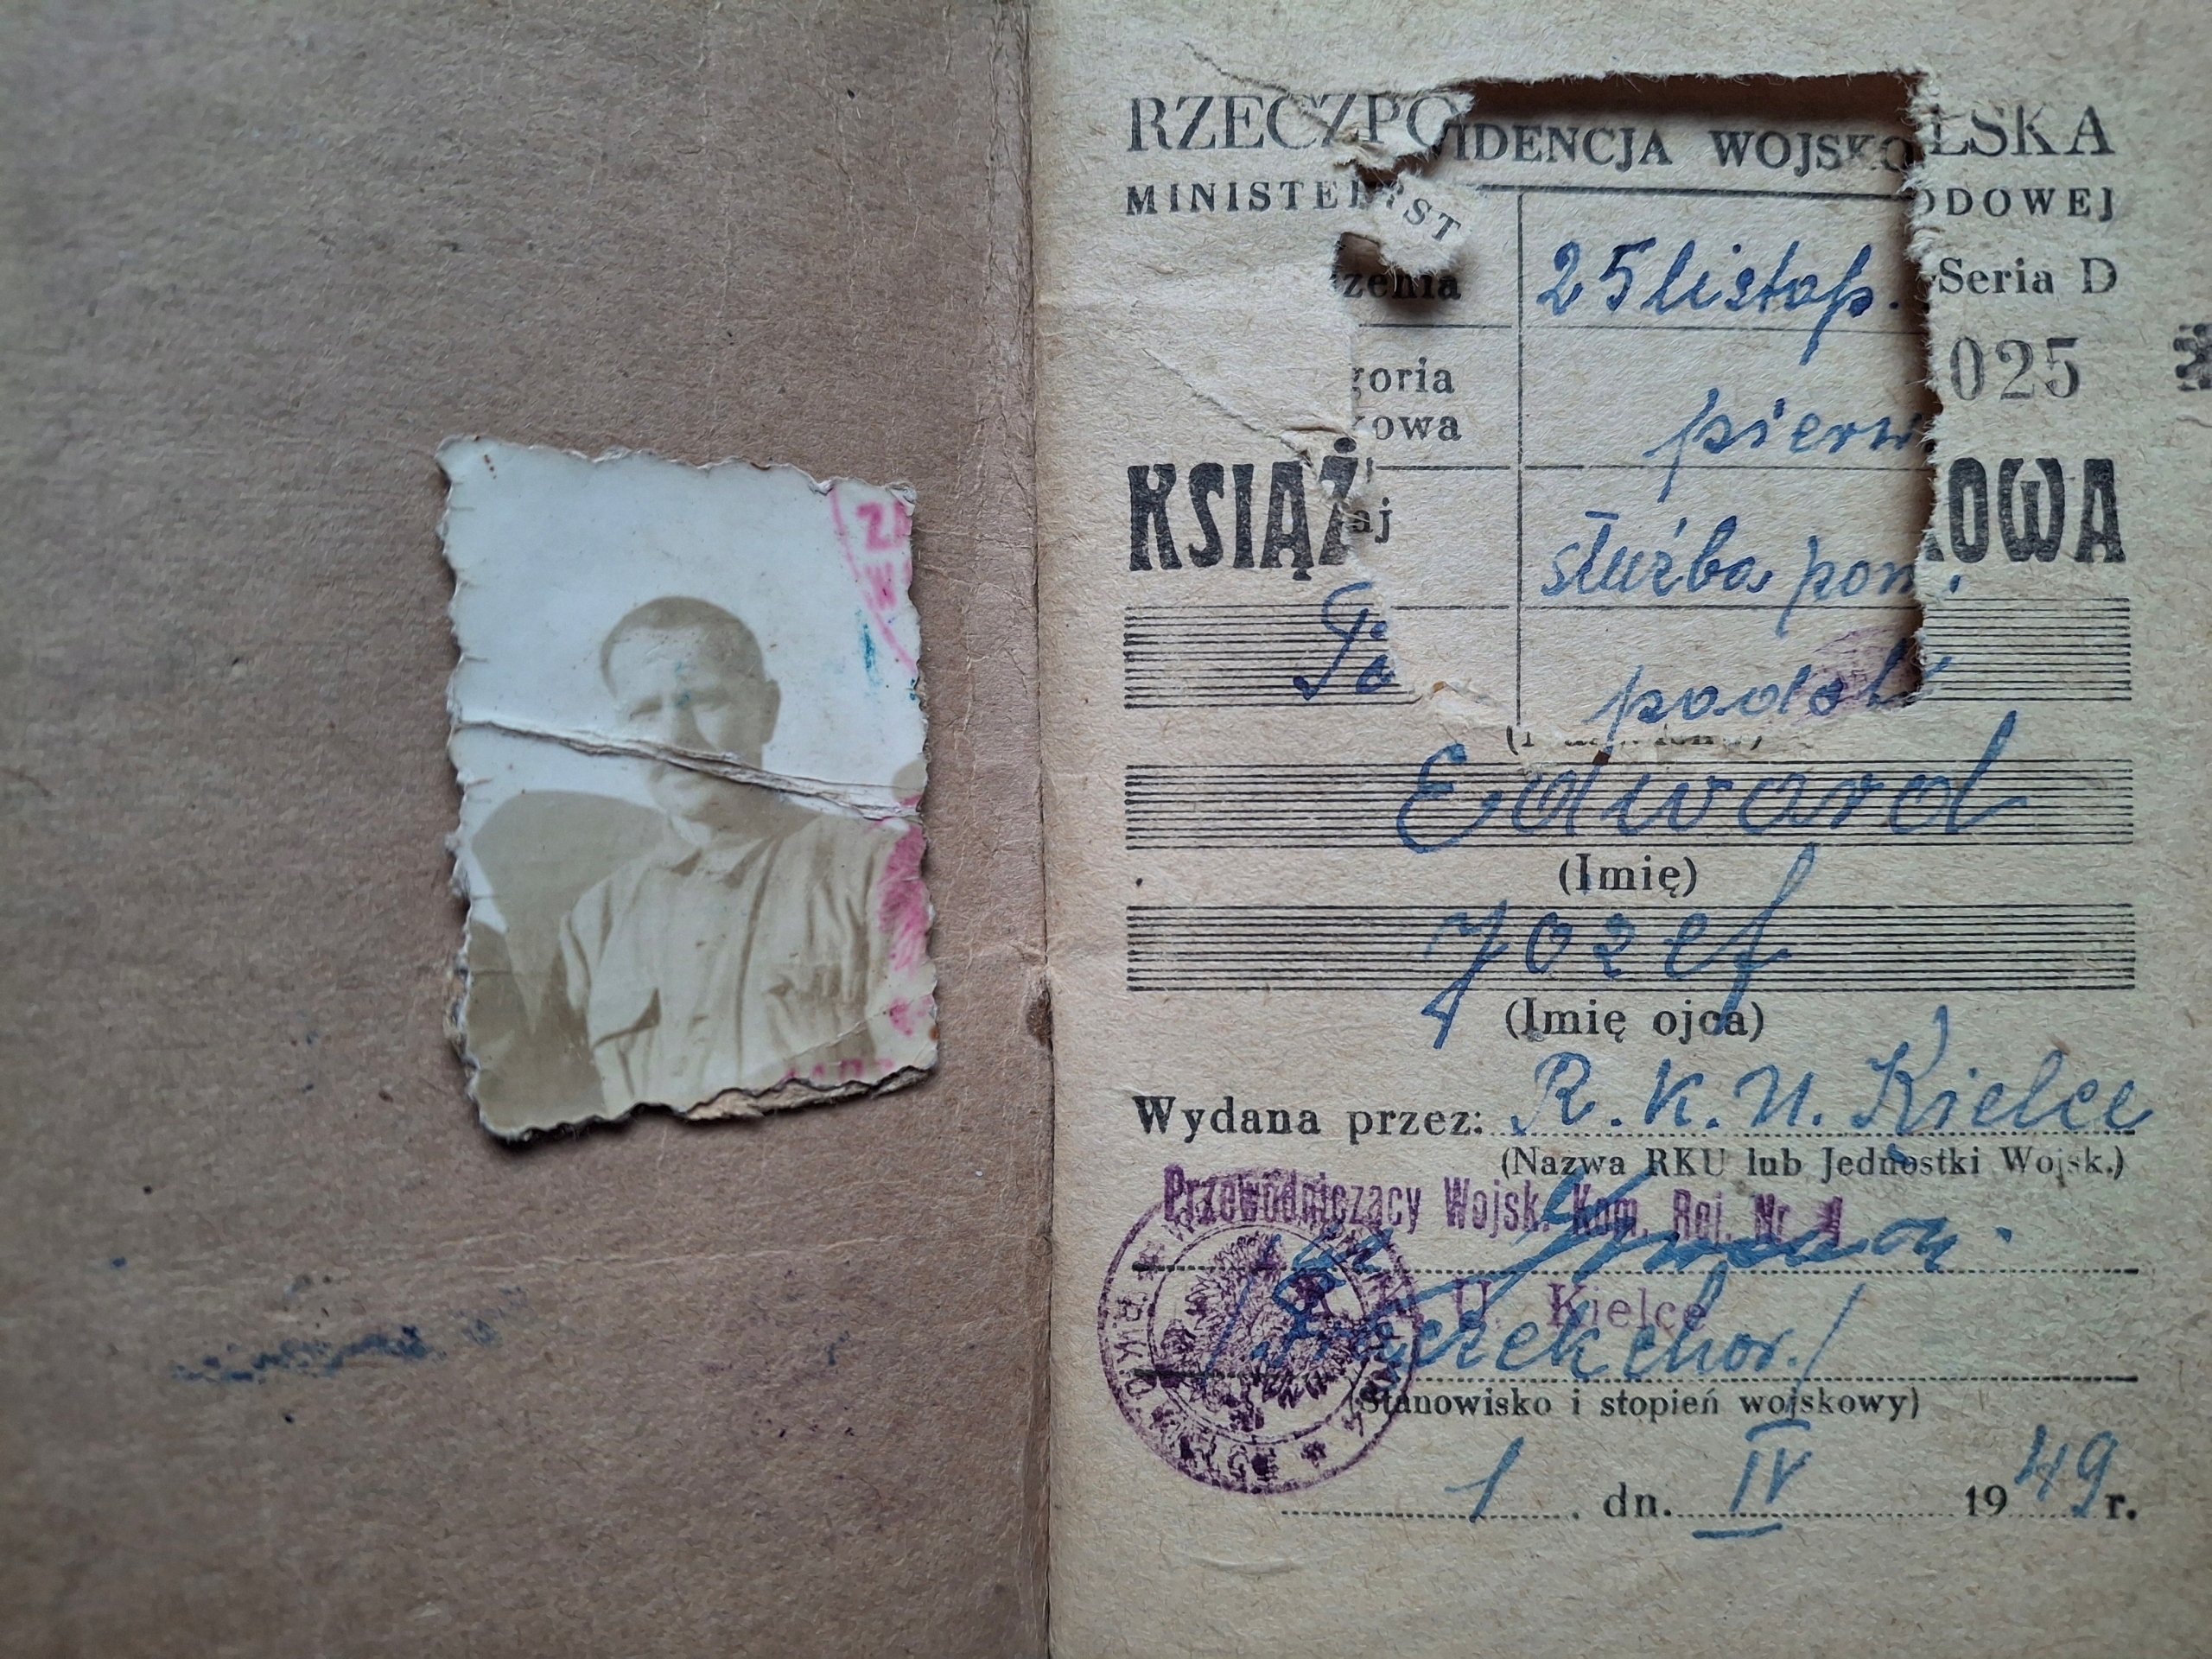 RZECZPO LSKA
IDENCJA WOJSKO
MINISTE ODOWEJ
ST
zenia 25 listop. Seria D
goria
kowa pierw
025
KSIĄŻ OWA
aj służba pom.
Edward
(Imię)
Józef
(Imię ojca)
Wydana przez: R.K.U. Kielce
(Nazwa RKU lub Jednostki Wojsk.)
Przewodniczący Wojsk. Kom. Rej. Nr. 1
R. K. U. Kielce
chor./
(Stanowisko i stopień wojskowy)
1 dn. IV 1949 r.